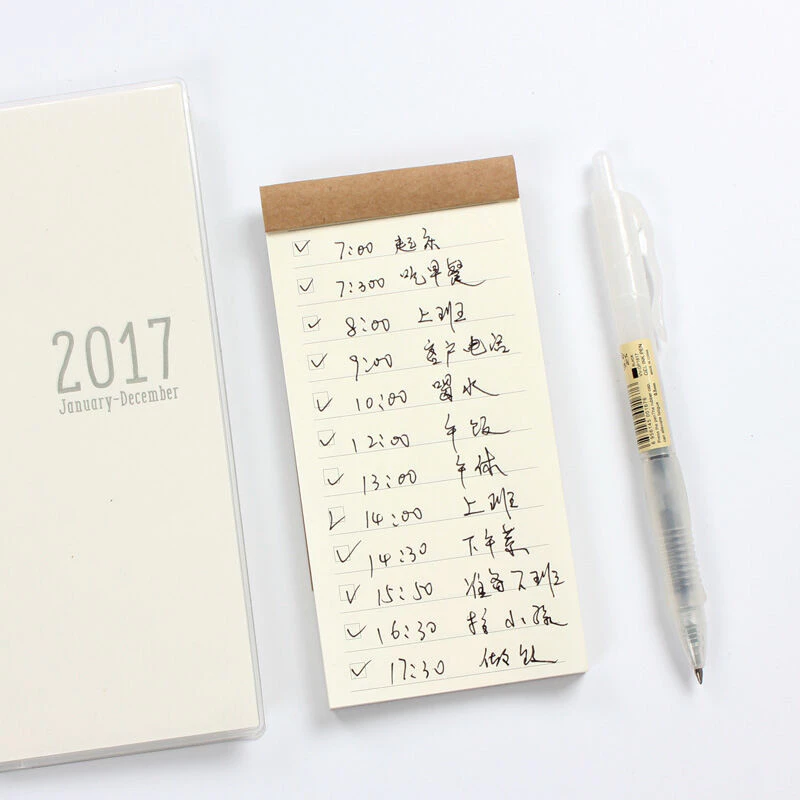 2017
January-December
7:00 起床
7:300 吃早餐
8:00 上班
9:00 客户电话
10:00 喝水
12:00 午饭
13:00 午休
14:00 上班
14:30 下午茶
15:50 准备下班
16:30 接小孩
17:30 做饭
GEL INK PEN
0.5mm